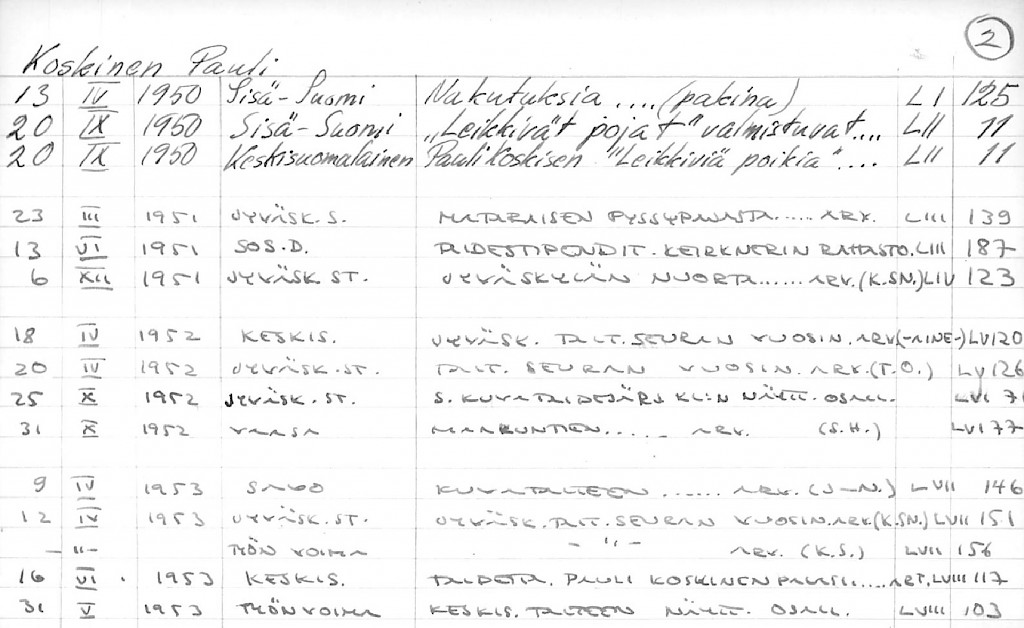 2
Koskinen Pauli
13 IV 1950 Sisä-Suomi Nakutuksia .... (pakina) LI 125
20 IX 1950 Sisä-Suomi „Leikkivät pojat" valmistuvat.... LII 11
20 IX 1950 Keskisuomalainen Pauli Koskisen "Leikkiviä poikia".... LII 11
23 III 1951 JYVÄSK. S. MATARAISEN PYSSYPAJASTA...... ARV. LIII 139
13 VI 1951 SOS.D. TAIDESTIPENDIT. KEIRKNERIN RAHASTO. LIII 187
6 XII 1951 JYVÄSK. ST. JYVÄSKYLÄN NUORTA...... ARV. (K.SN.) LIV 123
18 IV 1952 KESKIS. JYVÄSK. TAIT. SEURAN VUOSIN. ARV (-AINE-) LV 120
20 IV 1952 JYVÄSK. ST. TAIT. SEURAN VUOSIN. ARV. (T.O.) LV 126
25 X 1952 JYVÄSK. ST. S. KUVATAIDEJÄRJ KL:N NÄYTT. OSALL. LVI 71
31 X 1952 VAASA MAAKUNTIEN...... ARV. (S.H.) LVI 77
9 IV 1953 SAVO KUVATAITEEN ...... ARV. (J-N.) LVII 146
12 IV 1953 JYVÄSK. ST. JYVÄSK. TAIT. SEURAN VUOSIN. ARV. (K.SN.) LVII 151
-"- TYÖN VOIMA -"- ARV. (K.S.) LVII 156
16 VI. 1953 KESKIS. TAIDETA. PAULI KOSKINEN .... ART. LVIII 117
31 V 1953 TYÖN VOIMA KESKIS. TAITEEN NÄYTT. OSALL. LVIII 103